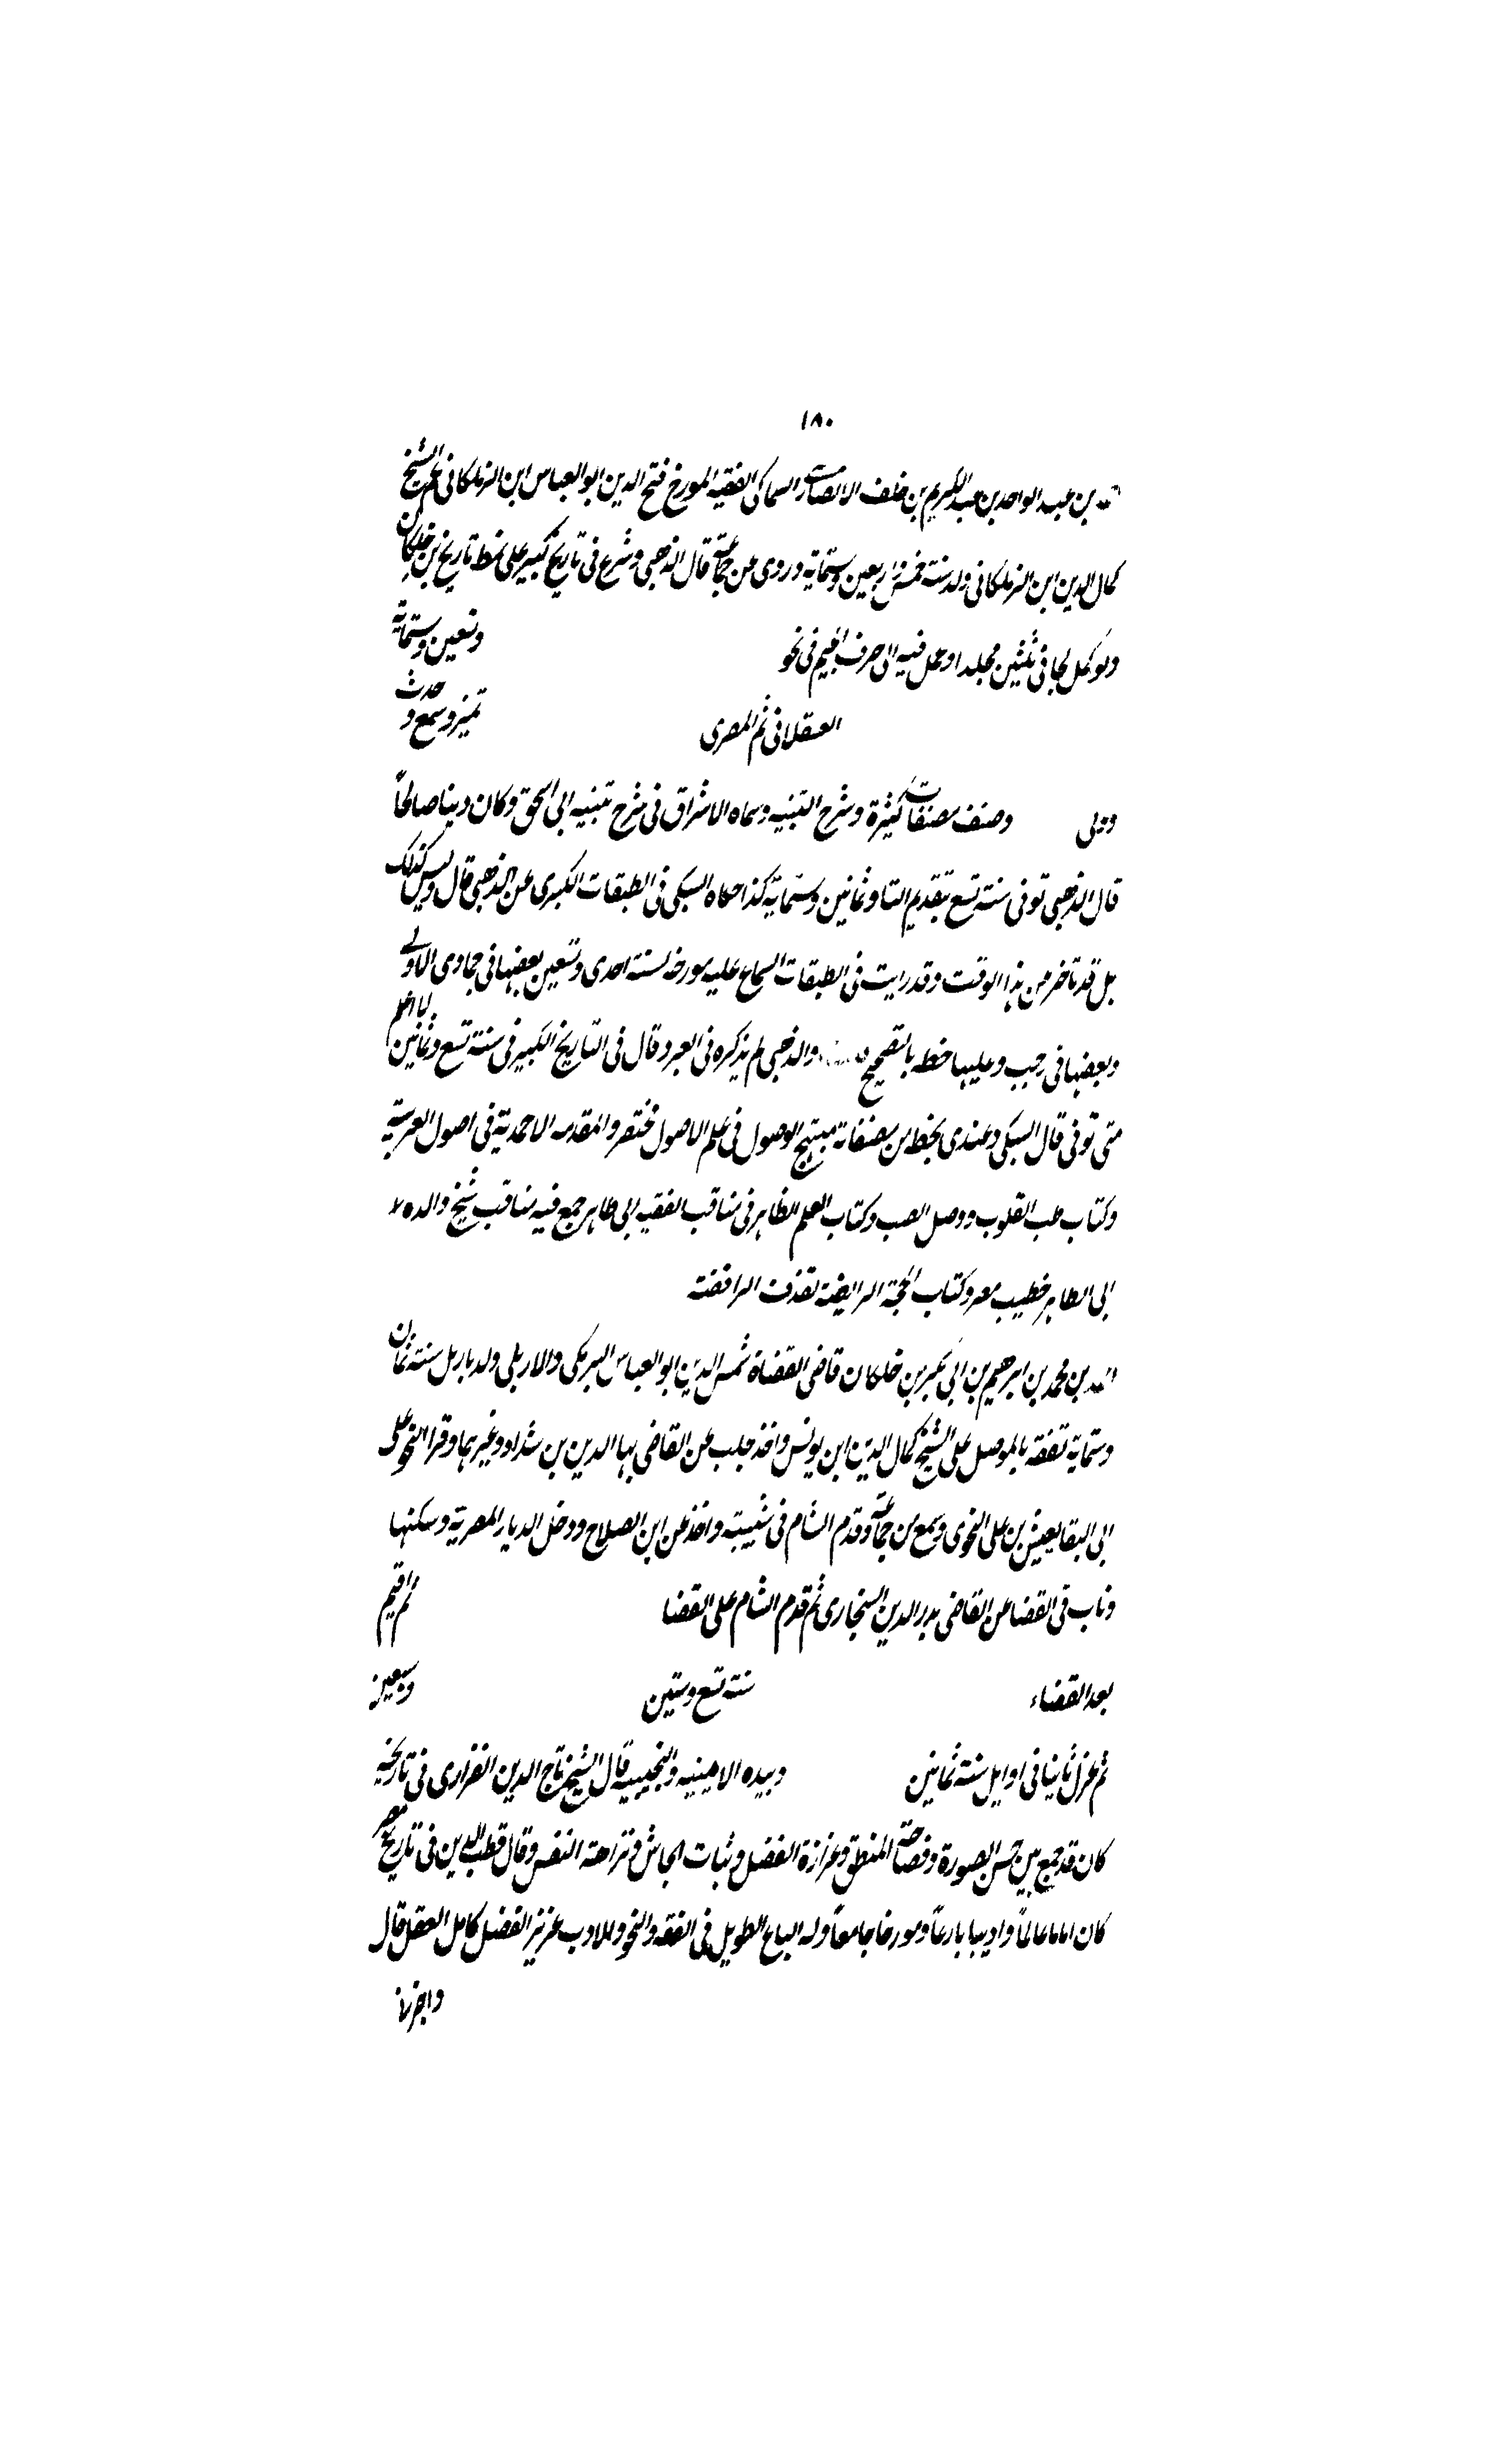 ١٨٠
احمد بن عبد الواحد بن عبد الكريم بن خلف الانصارى السماكى الفقيه المورخ فتح الدين ابو العباس ابن الزملكانى عم الشيخ
كمال الدين ابن الزملكانى ولد سنة خمس واربعين وستماية وروى عن جماعة قال الذهبى وشرع فى تاريخ كبير على نمط تاريخ بن خلكان
ولو كمل لجا فى ثلثين مجلدا وعمل فيه الى حرف الجيم فى نحو وتسعين وستماية
العسقلانى ثم المصرى تميز وسمع وحدث
وولى وصنف مصنفات كثيرة وشرح التنبيه وسماه الاشراق فى شرح تنبيه ابى اسحق وكان دينا صالحاً
قال الذهبى توفى سنة تسع بتقديم التا وثمانين وستماية كذا حكاه السبكى فى الطبقات الكبرى عن الذهبى قال وليس كذلك
بل قد تاخر عن هذا الوقت وقد رايت فى الطبقات السماع عليه مورخه لسنة احدى وتسعين بعضها فى جمادى الاولى
وبعضها فى رجب وعليها خطه بالتصحيح والذهبى لم يذكره فى العبر وقال فى التاريخ الكبير فى سنة تسع وثمانين لا اعلم
متى توفى قال السبكى وعندى بخطه من مصنفاته منهج الوصول فى علم الاصول مختصر والمقدمه الاحمدية فى اصول العربية
وكتاب طب القلوب ووصل الصب وكتاب العلم الظاهر فى مناقب الفقيه ابى طاهر جمع فيه مناقب شيخ والده
ابى الطاهر خطيب مصر وكتاب الحجة الرايضة لفرق الرافضة
احمد بن محمد بن ابرهيم بن ابى بكر بن خلكان قاضى القضاة شمس الدين ابو العباس البرمكى والاربلى ولد باربل سنة ثمان
وستماية تفقه بالموصل على الشيخ كمال الدين ابن يونس واخذ بحلب عن القاضى بها الدين بن شداد وغيرهما وقرا النحو على
ابى البقا يعيش بن على النحوى وسمع من جماعة وقدم الشام فى شبيبته واخذ عن ابن الصلاح ودخل الديار المصرية وسكنها
وناب فى القضا عن القاضى بدر الدين السنجارى ثم قدم الشام على القضا ثم اقيم
بعد القضاء سنة تسع وستين وسبعين
ثم عزل ثانيا فى اوايل سنة ثمانين وبيده الامينيه والنجيبيه قال الشيخ تاج الدين الفزارى فى تاريخه
كان قد جمع بين حسن الصورة وفصاحة المنطق وغزارة الفضل وثبات الجاش ونزاهة النفس وقال قطب الدين فى تاريخ مصر
كان اماما عالماً واديبا بارعاً ومورخا جامعاً وله الباع الطويل فى الفقه والنحو والادب غزير الفضل كامل العقل قال